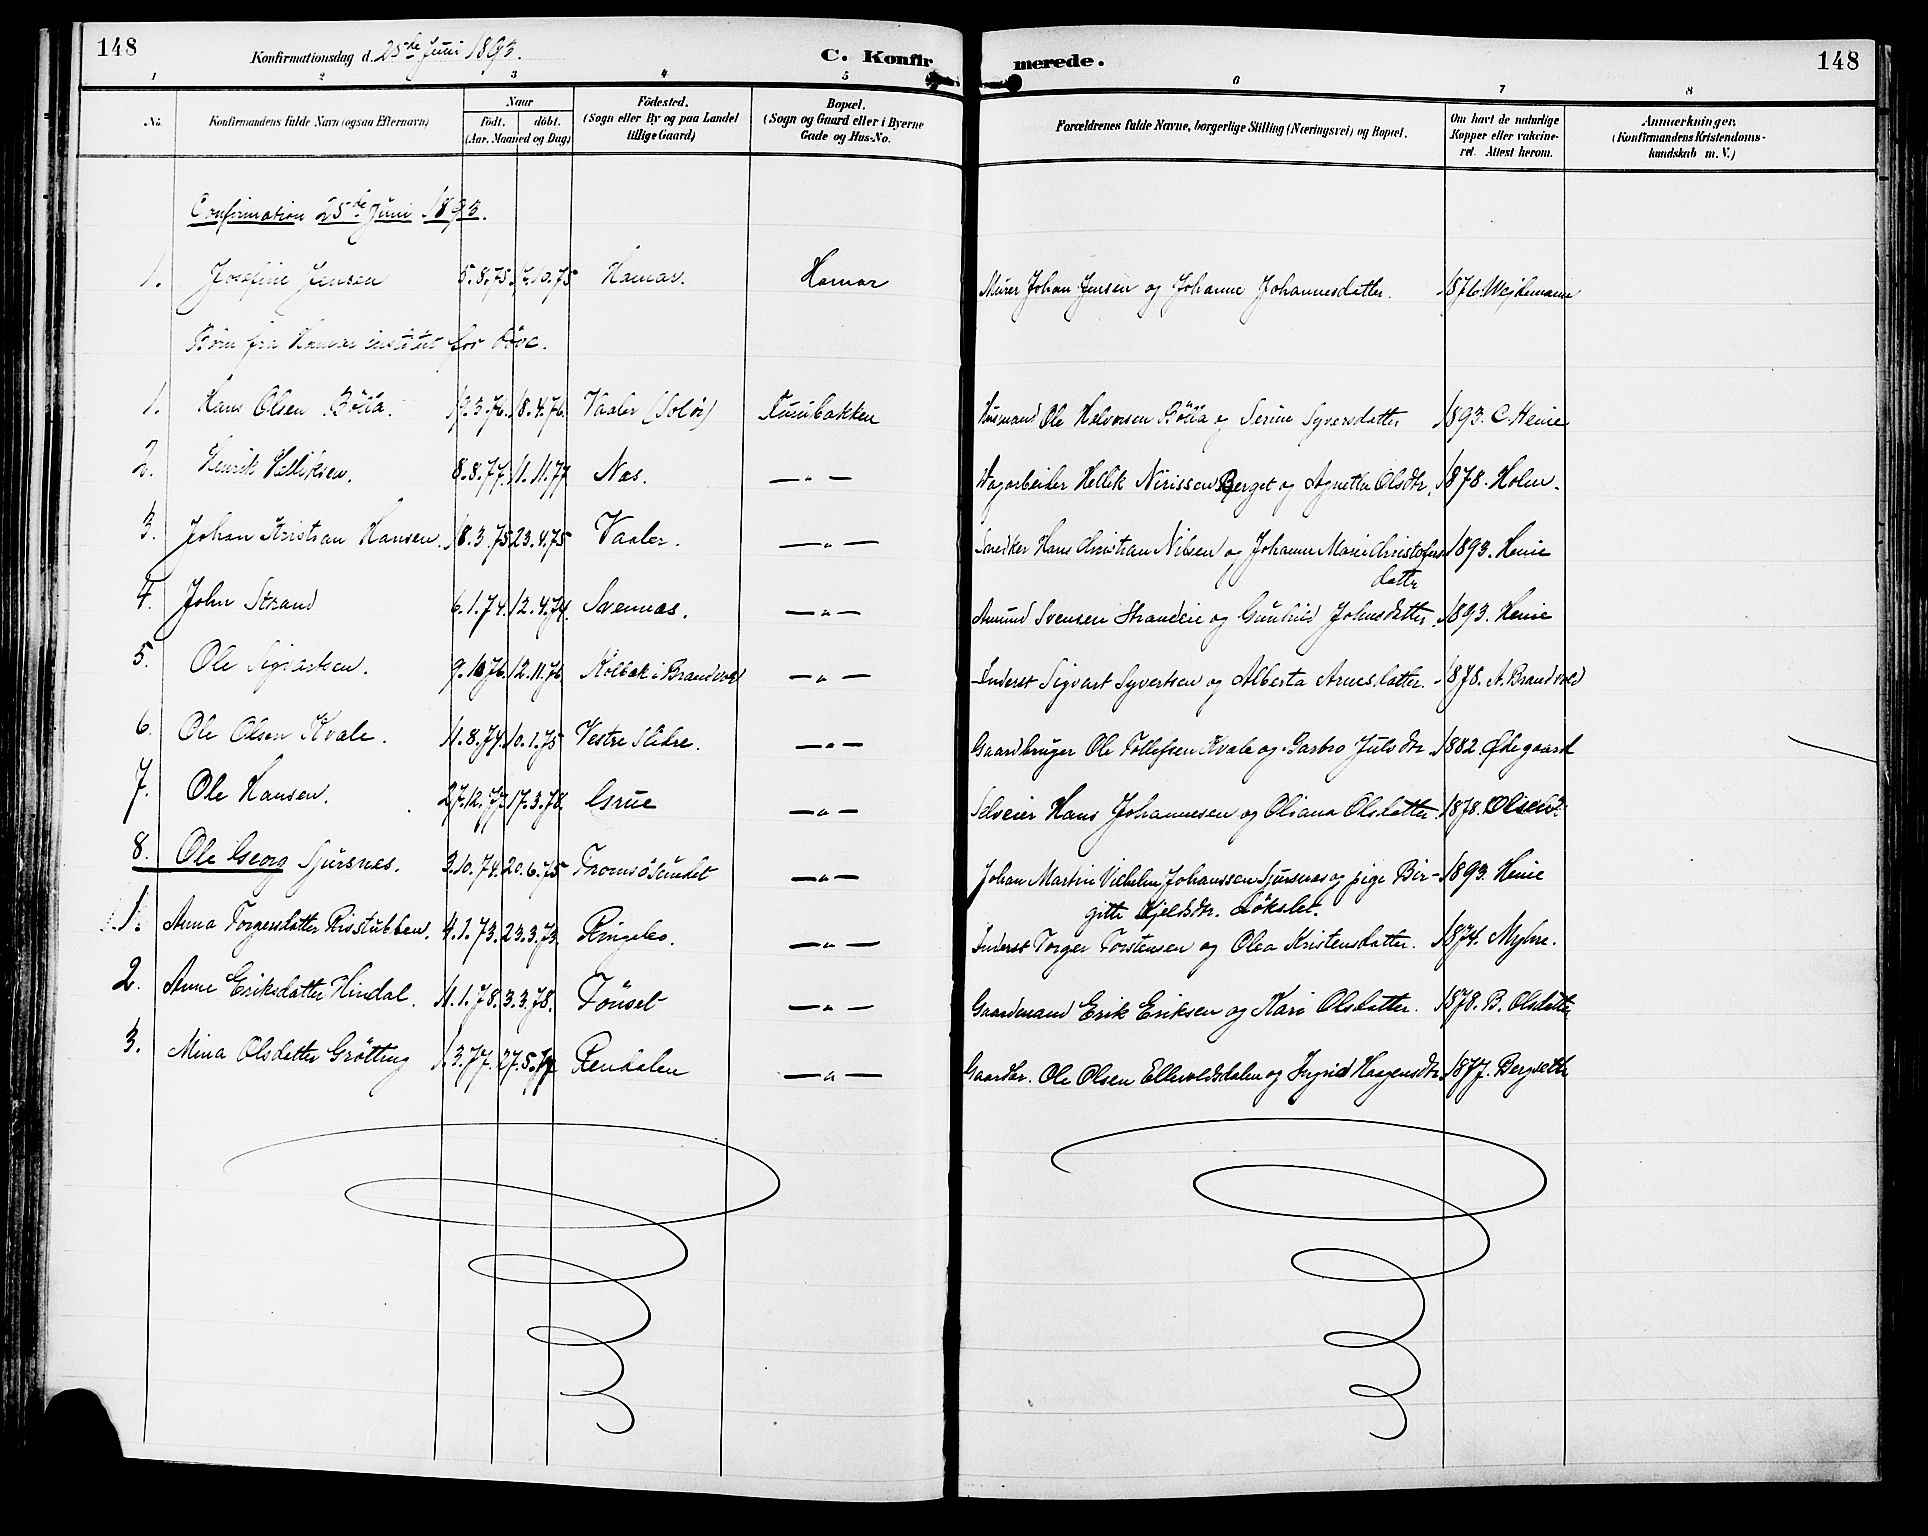 148
Konfirmationsdag d. 25de Juni 1893.
C. Konfirmerede.
148
1 2 3 4 5 6 7 8
No.
Konfirmandens fulde Navn (ogsaa Efternavn)
Naar
födt. döbt.
(Aar, Maaned og Dag)
Födested.
(Sogn eller By og paa Landet
tillige Gaard)
Bopæl.
(Sogn og Gaard eller i Byerne
Gade og Hus-No.
Forældrenes fulde Navne, borgerlige Stilling (Næringsvei) og Bopæl.
Om havt de naturlige
Kopper eller vakcine-
ret. Attest herom.
Anmærkninger.
(Konfirmandens Kristendoms-
kundskab m. V.)
Confirmation 25de Juni 1893.
1. Josefine Jensen 5.8.75. 17.10.75 Hamar. Hamar Murer Johan Jensen og Johanne Johannesdatter. 1876. Mejdemann
Börn fra Hamar institut for döve.
1. Hans Olsen Bölla. 19.3.76. 18.4.76. Vaaler (Solör) Furubakken Husmand Ole Halvorsen Bölla og Serine Syversdatter 1893. C. Heuie
2. Henrik Helliksen. 8.8.77. 11.11.77 Næs. — " — Dagarbeider Hellik Nirissen Berget og Agnethe Olsdtr. 1878. Holm.
3. Johan Kristian Hansen. 18.3.75. 23.4.75 Vaaler. — " — Snedker Hans Christian Nilsen og Johanne Marie Christofers
datter 1893. Heuie
4. John Strand 6.1.74. 12.4.74. Svennæs. — " — Amund Svensen Strandeie og Gunhild Johnsdatter. 1893. Heuie
5. Ole Sigvartsen. 9.10.76. 12.11.76 Kolbæk i Brandval — " — Inderst Sigvart Syvertsen og Alberta Arnesdatter. 1878. A. Brandvold
6. Ole Olsen Kvale. 11.8.74. 10.1.75 Vestre Slidre. — " — Gaardbruger Ole Tollefsen Kvale og Garbro Julsdtr. 1882. Ødegaard
7. Ole Hansen. 27.12.77. 17.3.78. Grue — " — Selveier Hans Johannesen og Oliana Olsdatter 1878. Olsen
8. Ole Georg Sjursnes. 3.10.74. 20.6.75 Tromsösundet — " — Johan Martin Vilhelm Johanssen Sjursnæs og pige Bir-
gitte Kjeldsdtr. Lökslet. 1893. Heuie
1. Anna Torgersdatter Risstubben. 4.1.73. 23.3.73. Ringebo. — " — Inderst Torger Torstensen og Olea Kristensdatter. 1874. Myhre.
2. Anne Eriksdatter Hindal. 11.1.78. 3.3.78. Tönset — " — Gaardmand Erik Eriksen og Kari Olsdatter. 1878. B. Olsdatter
3. Mina Olsdatter Grötting 1.3.77. 27.5.77 Rendalen — " — Gaardbr. Ole Olsen Ellevoldsdalen og Ingrid Haagensdtr. 1877. Bergseth